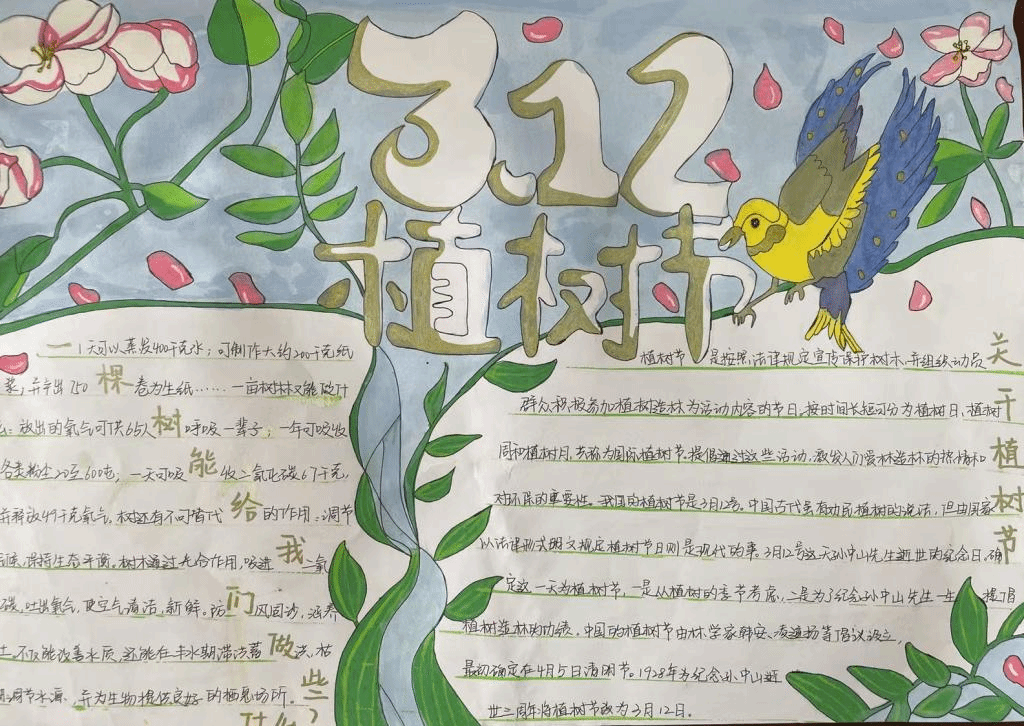 3.12
植树节
一 1天可以蒸发400千克水；可制作大约200千克纸
浆；并产出750 棵 卷卫生纸……一亩树林又能
放出的氧气可供65人 树 呼吸一辈子；一年可吸收
各类粉尘20至60吨；一天可吸 能 收二氧化碳67千克，
并释放49千克氧气。树还有不可替代 给 的作用：调节
气候，保持生态平衡。树木通过光合作用，吸进 我 二氧
碳，吐出氧气，使空气清洁、新鲜。防 们 风固沙，涵养
土。不仅能改善水质，还能在丰水期滞洪蓄 做 洪，枯
期调节水源，并为生物提供良好的栖息场所。 些
什么？
关于植树节
植树节 是按照法律规定宣传保护树木，并组织动员
群众积极参加植树造林为活动内容的节日。按时间长短可分为植树日、植树
周和植树月，共称为国际植树节。提倡通过这些活动，激发人们爱林造林的热情和
对环保的重要性。我国的植树节是3月12号。中国古代虽有动员植树的说法，但由国家
以法律形式明文规定植树节日则是现代的事。3月12号这天孙中山先生逝世的纪念日，确
定这一天为植树节，一是从植树的季节考虑，二是为了纪念孙中山先生一生 提倡
植树造林的功绩，中国的植树节由林学家韩安、凌道扬等倡议设立，
最初确定在4月5日清明节。1928年为纪念孙中山逝
世三周年将植树节改为3月12日。